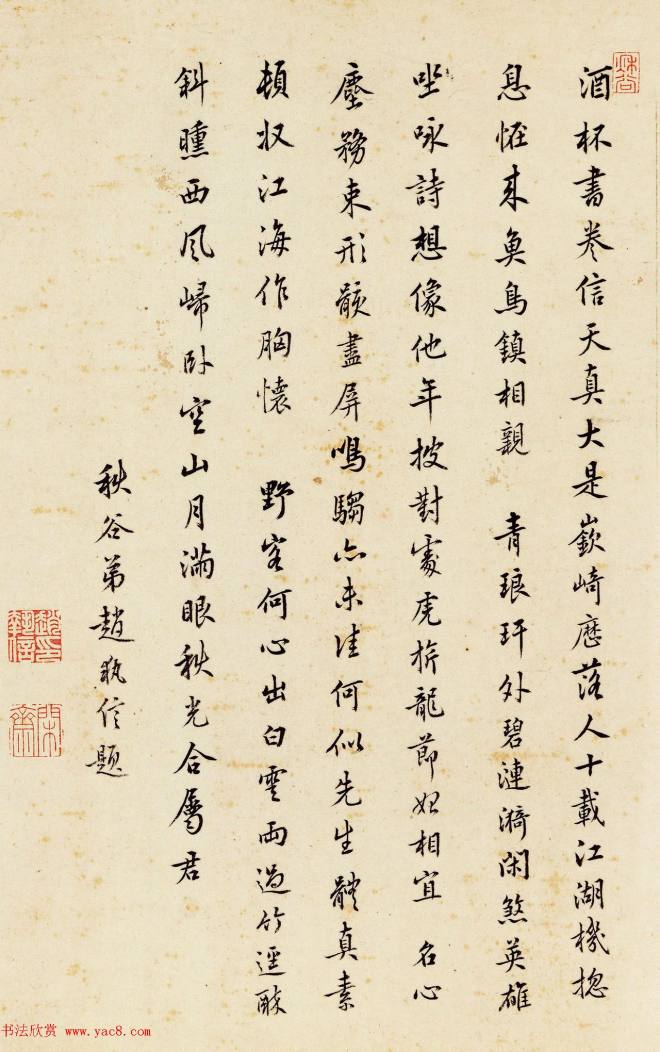 酒杯書卷信天真大是嶔崎歷落人十載江湖機揔
息恠来魚鳥鎮相親 青琅玕外碧漣漪閑煞英雄
坐咏詩想像他年披對處虎旂龍節始相宜 名心
塵務束形骸盡屏鳴騶亦未佳何似先生體真素
頓收江海作胸懷 野客何心出白雲雨過竹逕醉
斜曛西風歸卧空山月滿眼秋光合屬君
秋谷弟趙執信題
书法欣赏 www.yac8.com